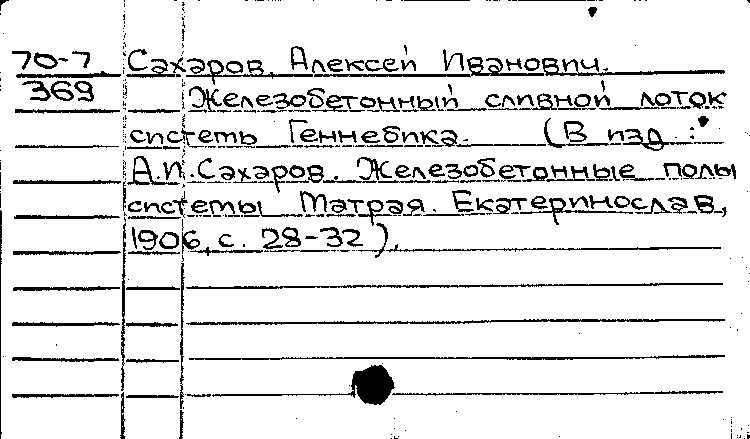 70-7. Сахаров, Алексей Иванович.
369 Железобетонный сливной лоток
системь Геннебика. (В изд.:
А.И. Сахаров. Железобетонные полы
системы Матрая. Екатеринослав,
1906, с. 28-32).